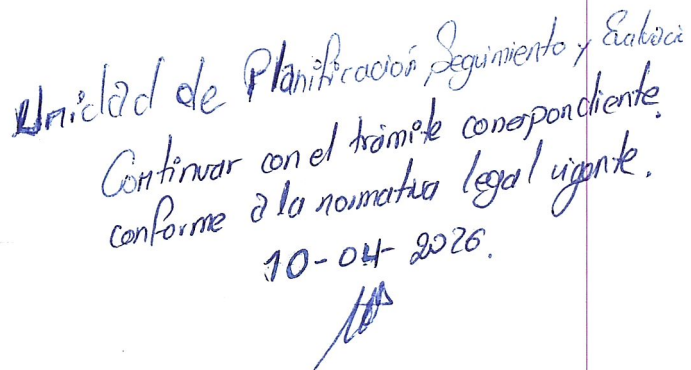 Unidad de Planificación Seguimiento y Evaluaci
Continuar con el trámite correspondiente
conforme a la normativa legal vigente.
10-04-2026.